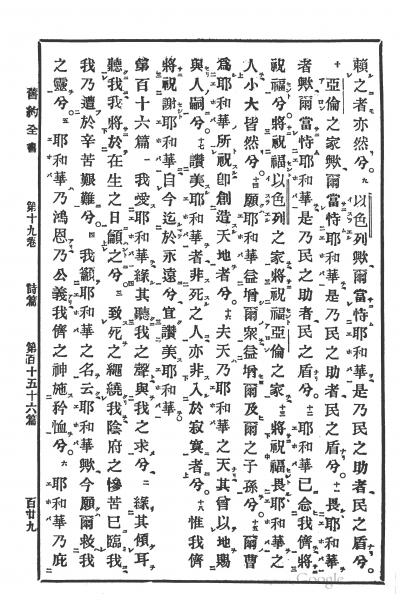 賴之者亦然兮。九以色列歟爾當恃耶和華是乃民之助者民之盾兮。
十亞倫之家歟爾當恃耶和華是乃民之助者民之盾兮。十一畏耶和華
者歟爾當恃耶和華是乃民之助者民之盾兮。十二耶和華已念我儕將
祝福兮將祝福以色列之家將祝福亞倫之家十三將祝福畏耶和華之
人小大皆然兮。十四願耶和華益增爾衆益增爾及爾之子孫兮。十五爾曹
爲耶和華所祝卽創造天地者兮。十六夫天乃耶和華之天其曾以地賜
與人嗣兮。十七讚美耶和華者非死之人亦非人於寂寞者兮。十八惟我儕
將祝謝耶和華自今迄於永遠兮宜讚美耶和華。
第百十六篇 一我愛耶和華緣其聽我之聲與我之求兮。二緣其傾耳
聽我我將於在生之日籲之兮。三致死之繩繞我陰府之慘苦已臨我
我乃遭於辛苦艱難兮。四我籲耶和華之名云耶和華歟今願爾救我
之靈兮。五耶和華乃鴻恩乃公義我儕之神施矜恤兮。六耶和華乃庇
舊約全書 第十九卷 詩篇 第百十五十六篇 百廿九
Google